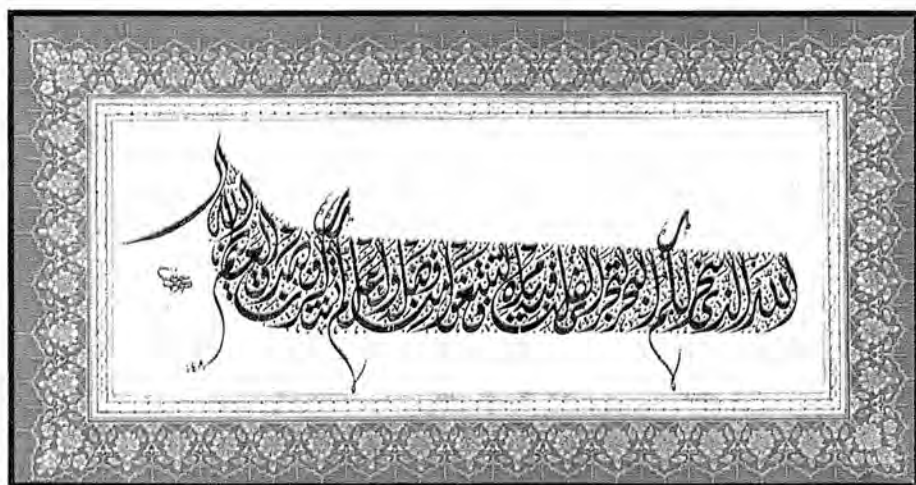 الله الذي سخر لكم البحر لتجري الفلك فيه بأمره ولتبتغوا من فضله ولعلكم تشكرون صدق الله العظيم